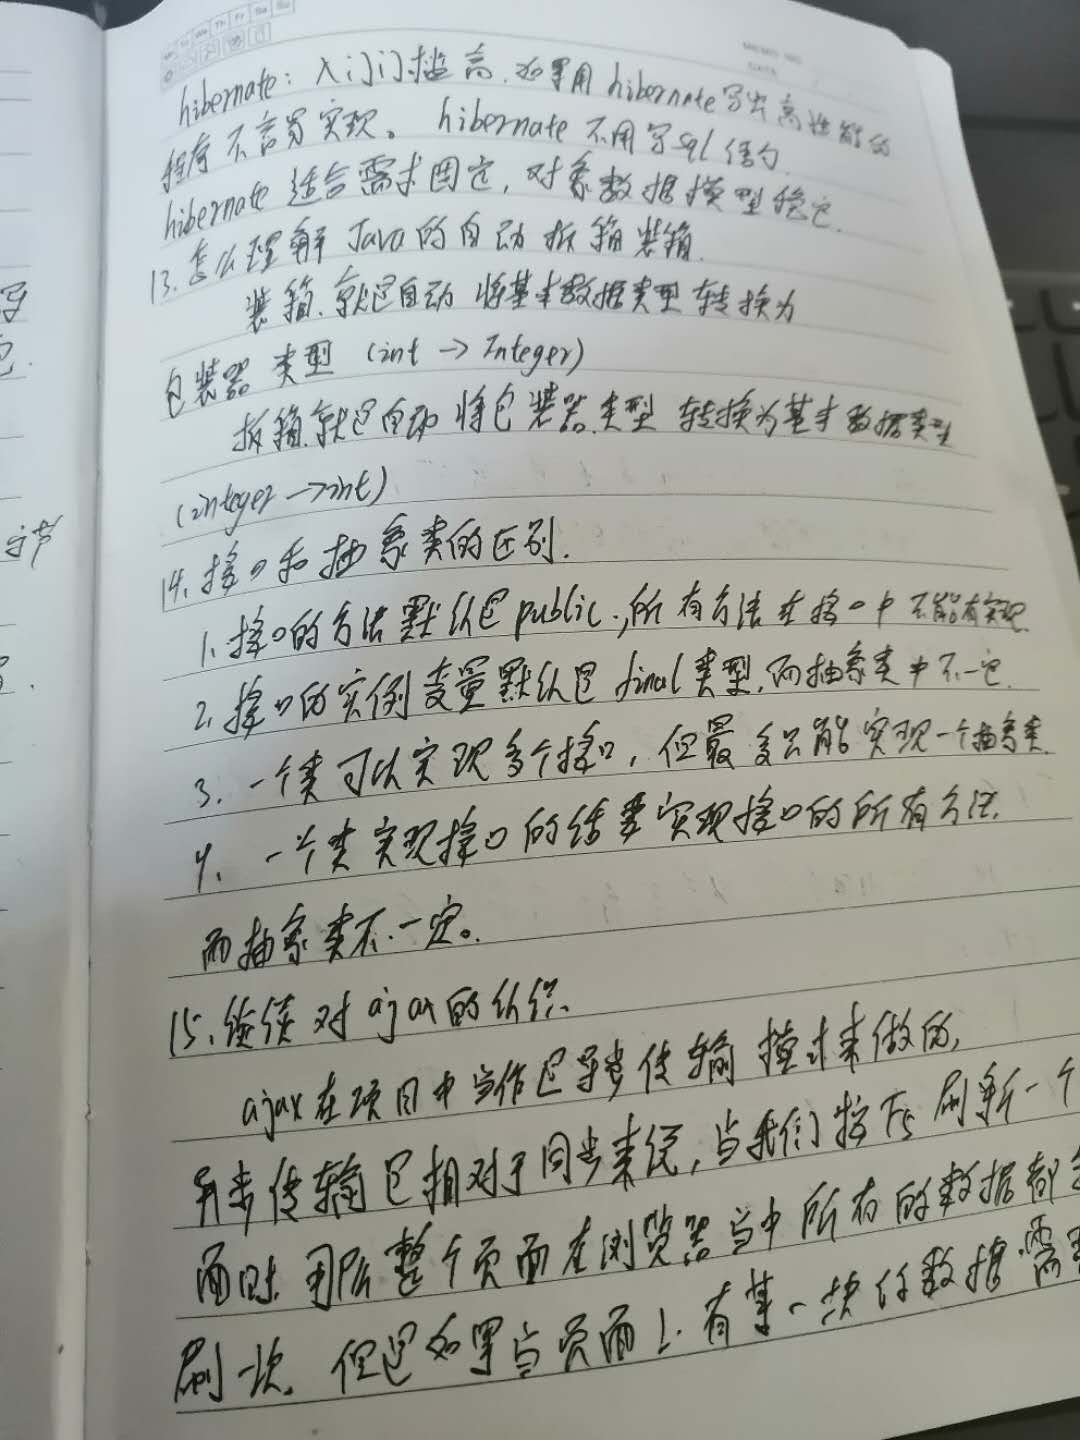 Mo Tu We Th Fr Sa Su
MEMO NO.
DATE
hibernate：入门门槛高，如果用hibernate写出高性能的
程序不容易实现。hibernate不用写sql语句
hibernate适合需求固定，对象数据模型稳定.
13.怎么理解Java的自动拆箱装箱.
装箱.就是自动将基本数据类型转换为
包装器类型（int→Integer）
拆箱.就是自动将包装器类型转换为基本数据类型
（integer→int）
14.接口和抽象类的区别.
1.接口的方法默认是public.,所有方法在接口中不能有实现
2.接口的实例变量默认是final类型,而抽象类中不一定.
3.一个类可以实现多个接口，但最多只能实现一个抽象类.
4.一个类实现接口的话要实现接口的所有方法.
而抽象类不一定。
15.谈谈对ajax的认识.
ajax在项目中当作是异步传输技术来做的,
异步传输是相对于同步来说,当我们按F5刷新一个
面时.那么整个页面在浏览器当中所有的数据都会
刷一次.但是如果当页面上.有某一块的数据需要
写
它.
字节